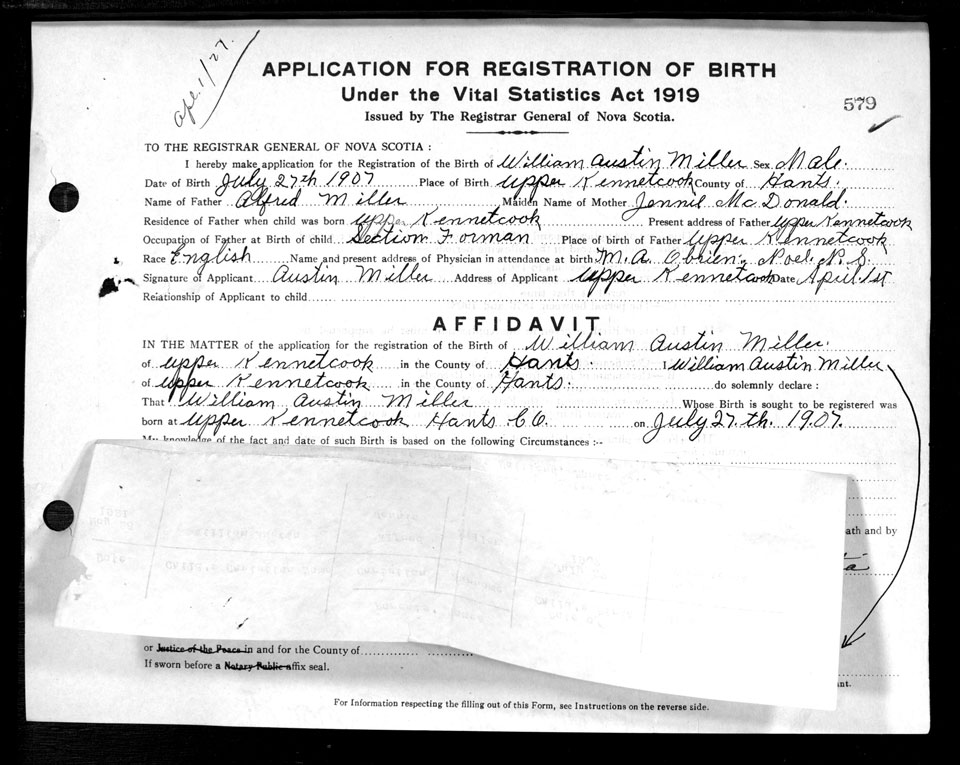 Ape. 1/27.
APPLICATION FOR REGISTRATION OF BIRTH
Under the Vital Statistics Act 1919
579
Issued by The Registrar General of Nova Scotia.
TO THE REGISTRAR GENERAL OF NOVA SCOTIA :
I hereby make application for the Registration of the Birth of William Austin Miller Sex Male.
Date of Birth July 27th 1907 Place of Birth Upper Kennetcook County of Hants.
Name of Father Alfred Miller Maiden Name of Mother Jennie McDonald.
Residence of Father when child was born Upper Kennetcook Present address of Father Upper Kennetcook
Occupation of Father at Birth of child Section Forman Place of birth of Father Upper Kennetcook
Race English Name and present address of Physician in attendance at birth M. A. Obrien, Noel, N. S.
Signature of Applicant Austin Miller Address of Applicant Upper Kennetcook Date April 1st
Relationship of Applicant to child
AFFIDAVIT
IN THE MATTER of the application for the registration of the Birth of William Austin Miller.
of Upper Kennetcook in the County of Hants. I William Austin Miller
of Upper Kennetcook in the County of Hants. do solemnly declare :
That William Austin Miller Whose Birth is sought to be registered was
born at Upper Kennetcook Hants CO. on July 27.th. 1907.
My knowledge of the fact and date of such Birth is based on the following Circumstances :--
ath and by
or Justice of the Peace in and for the County of
If sworn before a Notary Public affix seal.
nt.
For Information respecting the filling out of this Form, see Instructions on the reverse side.